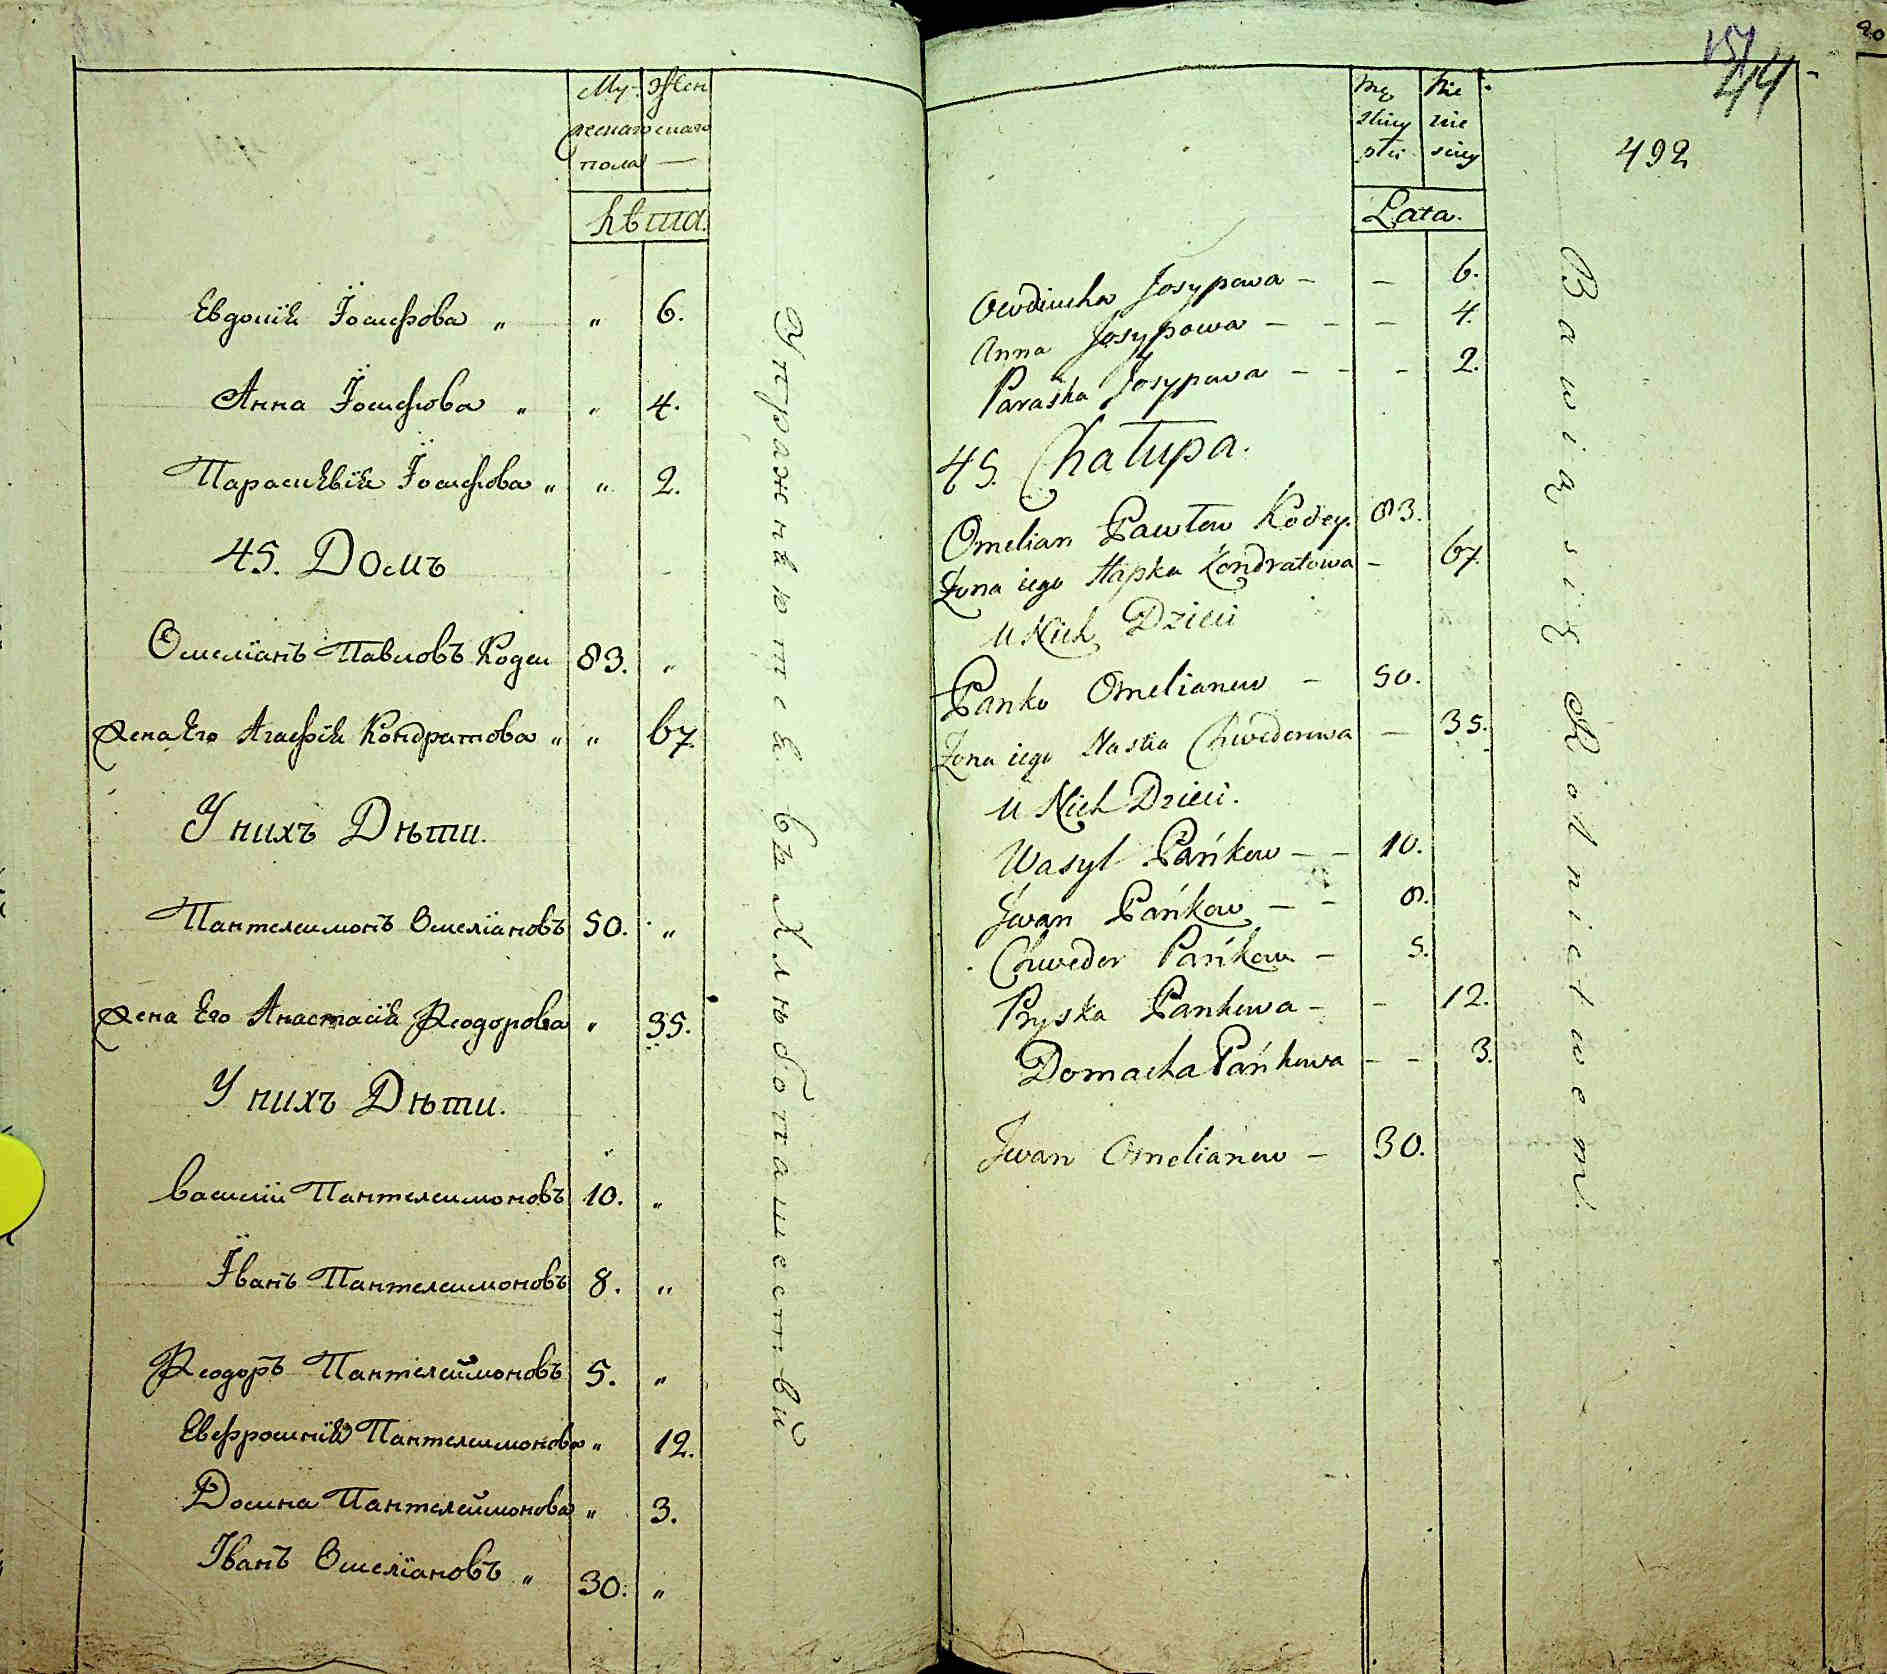 Му- Жен
жескаго скаго
пола —
Лѣта.
Евдокія Іосифова „ „ 6.
Анна Іосифова „ „ 4.
Параскевія Іосифова „ „ 2.
45. Домъ
Омеліанъ Павловъ Кодеи 83. „
Жена Его Агафія Кондратова „ „ 67.
У нихъ Дѣти.
Пантелеимонъ Омеліановъ 50. „
Жена Его Анастасія Феодорова „ 35.
У нихъ Дѣти.
Василіи Пантелеимоновъ 10. „
Іванъ Пантелеимоновъ 8. „
Феодоръ Пантелеимоновъ 5. „
Евфросинія Пантелеимонова „ 12.
Домна Пантелеимонова „ 3.
Іванъ Омеліановъ „ 30. „
Упражняются въ Хлѣбопашествѣ
44
492
Mę Nie
skiey wie
płci sciey
Lata.
Owdiucha Josypowa – – 6.
Anna Josypowa – – – 4.
Paraska Josypowa – – – 2.
45. Chałupa.
Omelian Pawłow Kodey. 83.
Żona iego Hapka Kondratowa – 67.
U Nich Dzieci
Panko Omelianow – 50.
Żona iego Nastia Chwedorowa – 35.
U Nich Dzieci.
Wasyl Pańkow – – 10.
Jwan Pańkow – – 8.
Chwedor Pańkow – 5.
Pryska Pankowa – – 12.
Domacha Pańkowa – – 3.
Jwan Omelianow – 30.
Bawią się Rolnictwem.